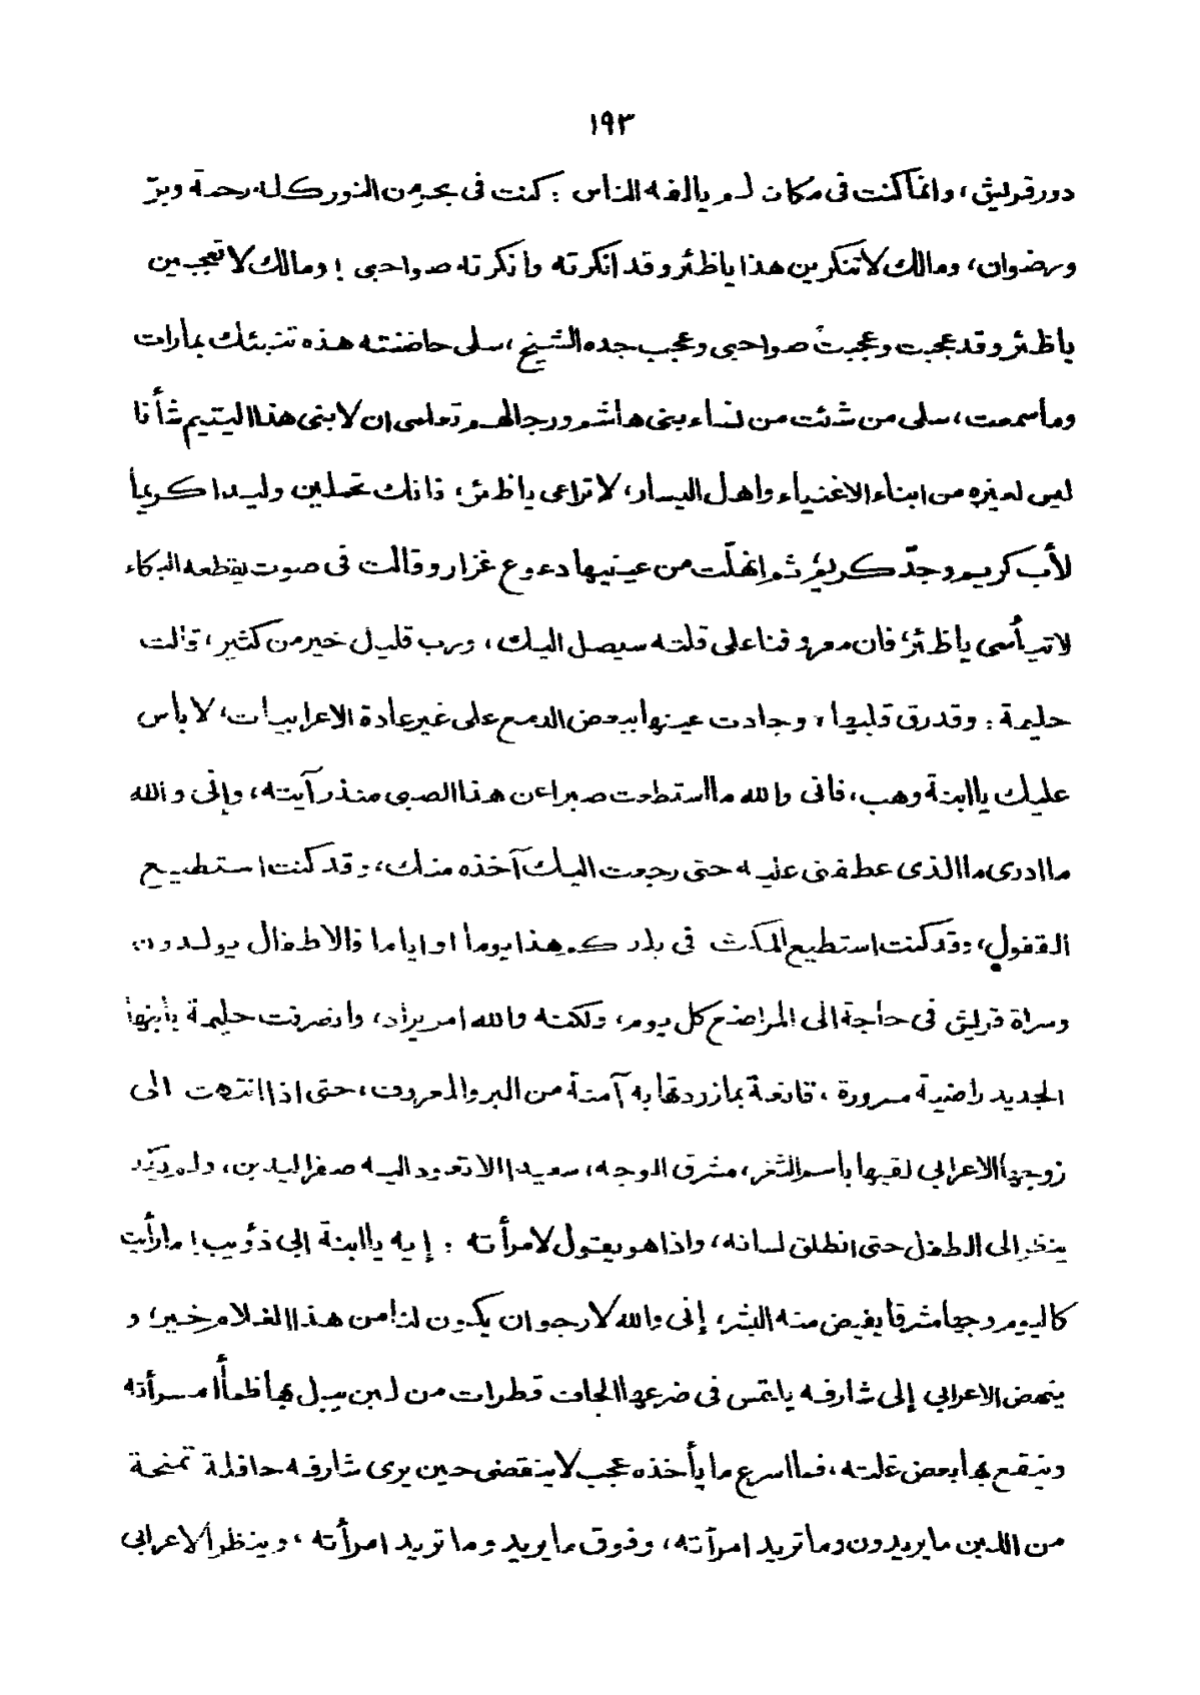 ١٩٣
دور قريش، وانما كنت فى مكان لم يالفه الناس : كنت فى بحر من النور كله رحمة وبرّ
ورضوان، ومالك لا تنكرين هذا ياظئر وقد انكرته وانكرته صواحبى ! ومالك لا تعجبين
ياظئر وقد عجبت وعجبت صواحبى وعجب جده الشيخ ،سلى حاضنته هذه تنبئك بمارات
وماسمعت، سلى من شئت من نساء بنى هاشم ورجالهم تعلمى ان لابنى هذا اليتيم شأنا
ليس لغيره من ابناء الاغنياء واهل اليسار، لا تراعى ياظئر، فانك تحملين وليدا كريما
لأب كريم وجدّ كريم، ثم انهلّت من عينيها دموع غزار وقالت فى صوت يقطعه البكاء
لا تيأسى ياظئر؛ فان معروفنا على قلته سيصل اليك، ورب قليل خير من كثير، قالت
حليمة : وقد رق قلبها ، وجادت عينها ببعض الدمع على غير عادة الاعرابيات، لا بأس
عليك يا ابنة وهب، فانى والله ما استطعت صبرا عن هذا الصبى منذ رآيته، وإنى والله
ما ادرى ما الذى عطفنى عليه حتى رجعت اليك آخذه منك، وقد كنت استطيع
القفول، وقد كنت استطيع المكث فى بلدكم هذا يوما او اياما فالاطفال يولدون
وسراة قريش فى حاجة الى المراضع كل يوم، ولكنه والله امر يراد، وانصرفت حليمة بابنها
الجديد راضية مسرورة ، قانعة بما زودتها به آمنة من البر والمعروف، حتى اذا انتهت الى
زوجها الاعرابي لقيها باسم الثغر، مشرق الوجه، سعيدا الا تعود اليه صفر اليدين، ولم يكد
ينظر الى الطفل حتى انطلق لسانه، واذا هو يقول لامرأته : إيه يا ابنة ابى ذئيب! مارأيت
كاليوم وجها مشرقا يفيض منه البشر، إنى والله لارجو ان يكون لنا من هذا الغلام خير؛ و
ينهض الاعرابي إلى شارفه يلتمس فى ضرعها الجاف قطرات من لبن يبل بها ظمأ امرأته
وينقع بها بعض غلته، فما اسرع ما يأخذه عجب لا ينقضى حين يرى شارفه حافلة تمنحه
من اللبن ما يريد ون وما تريد امرآته، وفوق ما يريد وما تريد امرأته ، وينظر الاعرابى